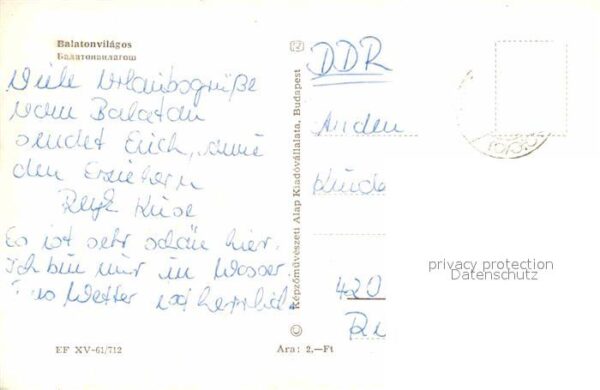 Balatonvilágos
Балатонвилагош
Viele Urlaubsgrüße
vom Balaton
sendet Euch, sowie
den Erziehern
Es ist sehr schön hier.
Ich bin nur im Wasser.
Wetter ist herrlich.
EF XV-61/712
Képzőművészeti Alap Kiadóvállalata, Budapest
DDR
An den
Kinde
420
Ára: 2,—Ft
privacy protection
Datenschutz